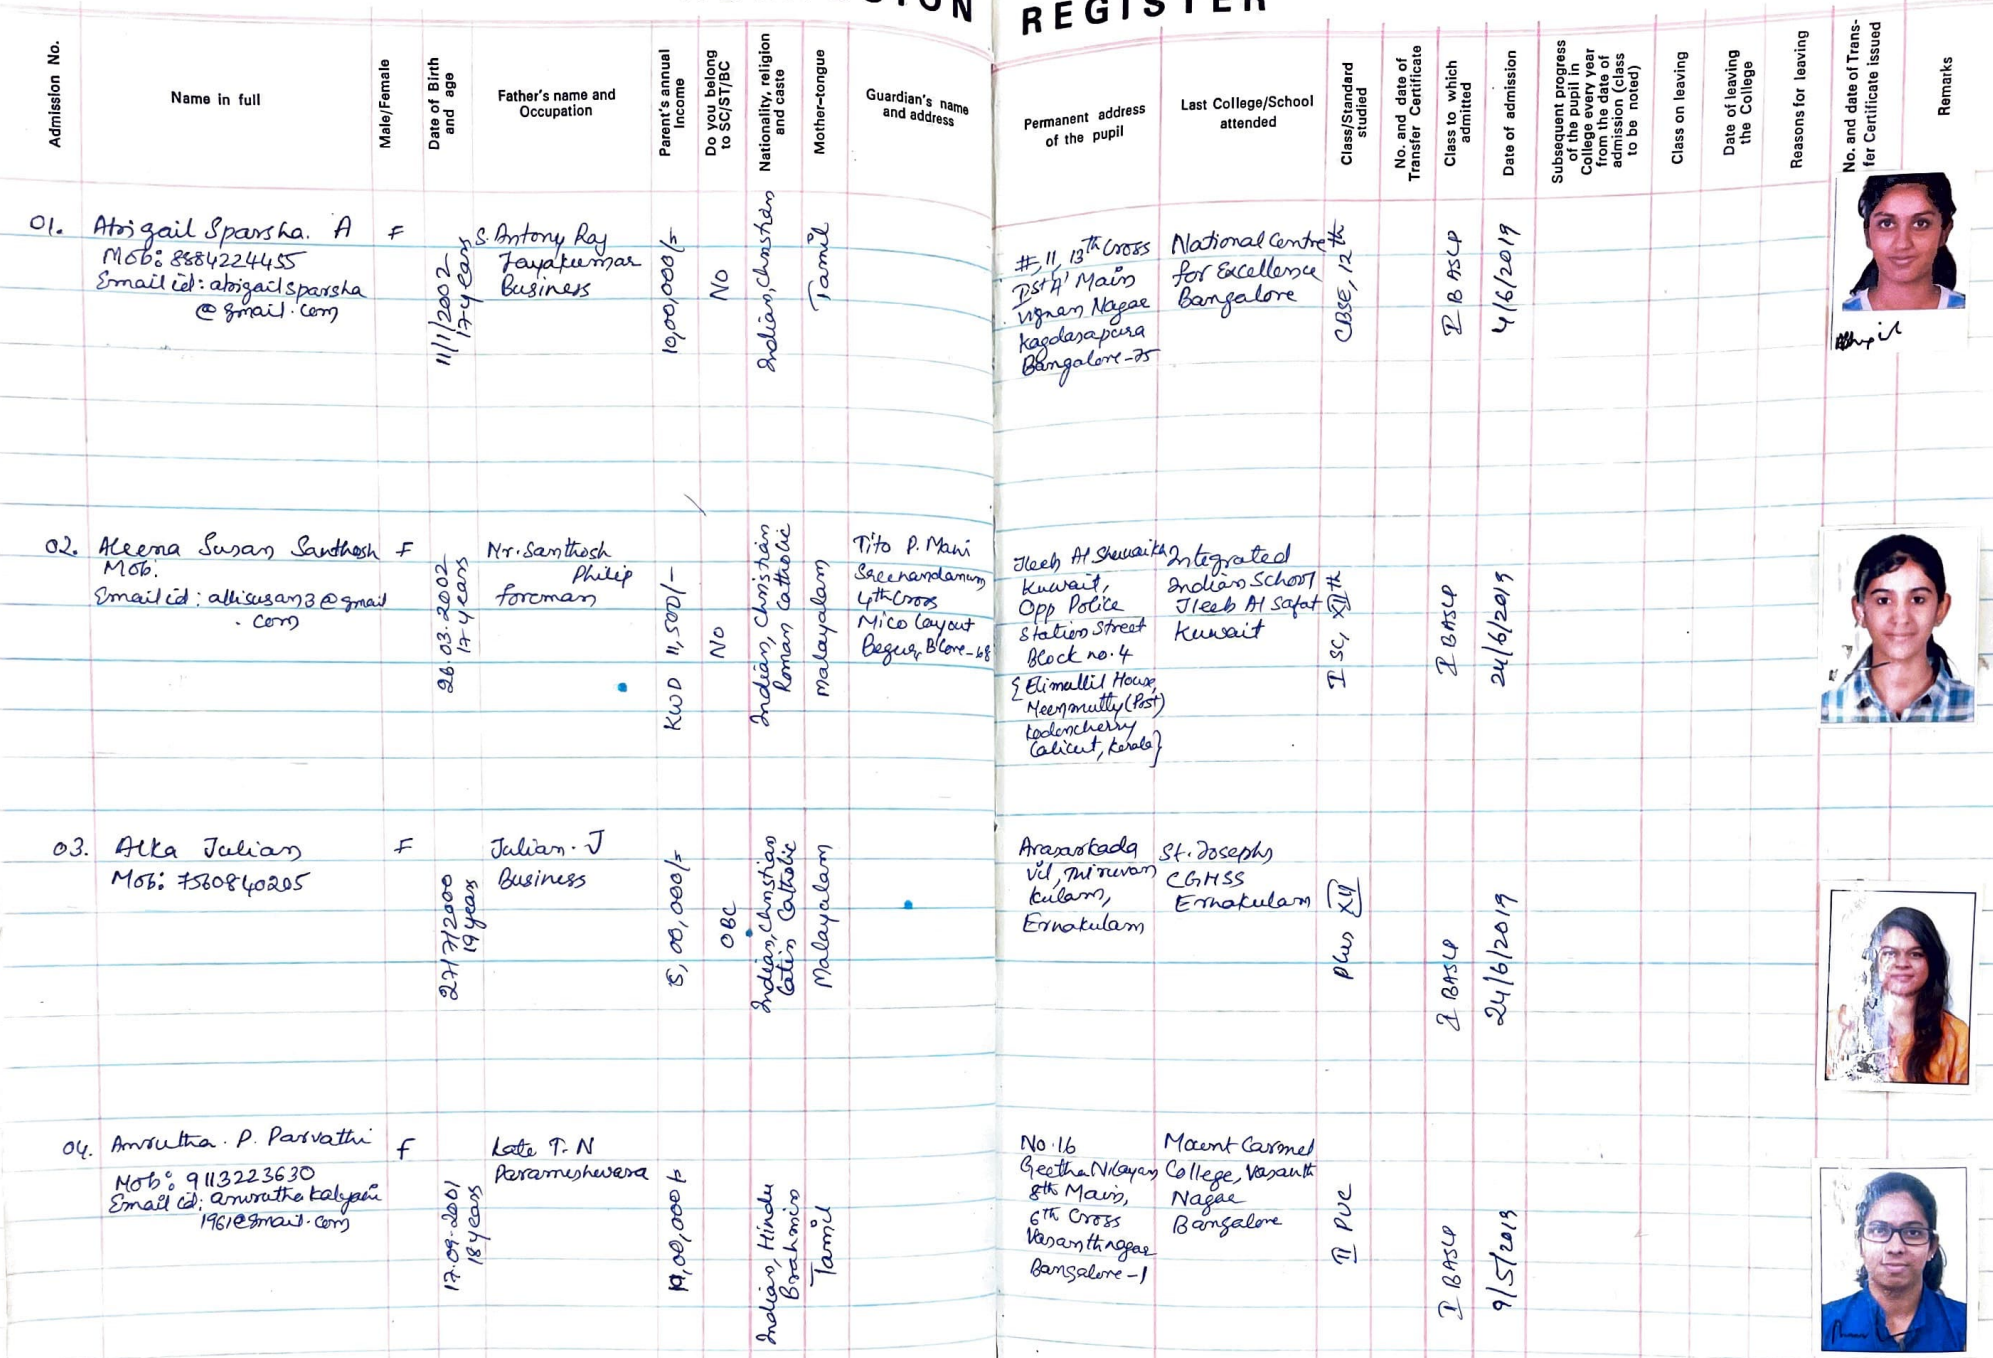 REGISTER
Admission No.
Name in full
Male/Female
Date of Birth
and age
Father's name and
Occupation
Parent's annual
Income
Do you belong
to SC/ST/BC
Nationality, religion
and caste
Mother-tongue
Guardian's name
and address
Permanent address
of the pupil
Last College/School
attended
Class/Standard
studied
No. and date of
Transfer Certificate
Class to which
admitted
Date of admission
Subsequent progress
of the pupil in
College every year
from the date of
admission (class
to be noted)
Class on leaving
Date of leaving
the College
Reasons for leaving
No. and date of Trans-
fer Certificate issued
Remarks
01.
Abigail Sparsha. A
Mob: 8884224455
Email id: abigailsparsha
@gmail.com
F
11/1/2002
17 years
S. Antony Raj
Jayakumar
Business
10,00,000/=
No
Indian, Christian
Tamil
#, 11, 13th Cross
Ist 'A' Main
Vignan Nagar
Kagdasapura
Bangalore-75
National Centre
for Excellence
Bangalore
CBSE, 12th
I BASLP
4/6/2019
02.
Aleena Susan Santhosh
Mob:
Email id: allisusan3@gmail
.com
F
26.03.2002
17 years
Mr. Santhosh
Philip
foreman
KWD 11,500/-
No
Indian, Christian
Roman Catholic
Malayalam
Tito P. Mani
Sreenandanam
4th Cross
Mico Layout
Begur, B'lore-68
Jleeb Al Shuwaikh
Kuwait,
Opp Police
Station Street
Block no. 4
{Elimullil House,
Meenmutty (Post)
Kodencherry
Calicut, Kerala}
Integrated
Indian School
Jleeb Al Safat
Kuwait
I SC, XIIth
I BASLP
24/6/2019
03.
Alka Julian
Mob: 7560840205
F
27/7/2000
19 years
Julian. J
Business
5,00,000/=
OBC
Indian, Christian
Latin Catholic
Malayalam
Arasarkada
Vil, Thiruvan
kulam,
Ernakulam
St. Josephs
CGHSS
Ernakulam
Plus XII
I BASLP
24/6/2019
04.
Amrutha. P. Parvathi
Mob: 9113223630
Email id: amruthakalyani
1961@gmail.com
F
17.09.2001
18 years
Late T. N
Parameshwara
Indian, Hindu
Brahmin
Tamil
No. 16
Geetha Nilayam
8th Main,
6th Cross
Vasanthnagar
Bangalore-1
Mount Carmel
College, Vasanth
Nagar
Bangalore
II PUC
I BASLP
9/5/2019